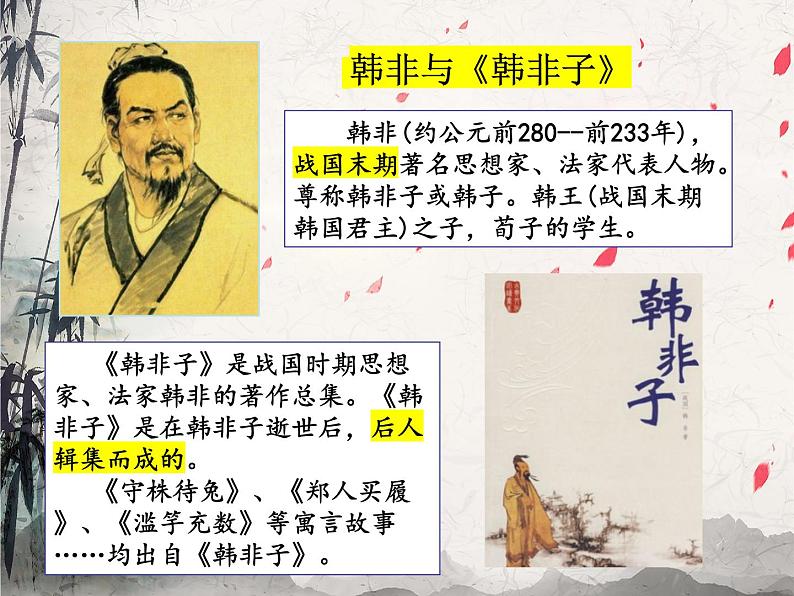 韩非与《韩非子》
韩非(约公元前280--前233年),
战国末期著名思想家、法家代表人物。
尊称韩非子或韩子。韩王(战国末期
韩国君主)之子，荀子的学生。
《韩非子》是战国时期思想
家、法家韩非的著作总集。《韩
非子》是在韩非子逝世后，后人
辑集而成的。
《守株待兔》、《郑人买履
》、《滥竽充数》等寓言故事
……均出自《韩非子》。
韩非子